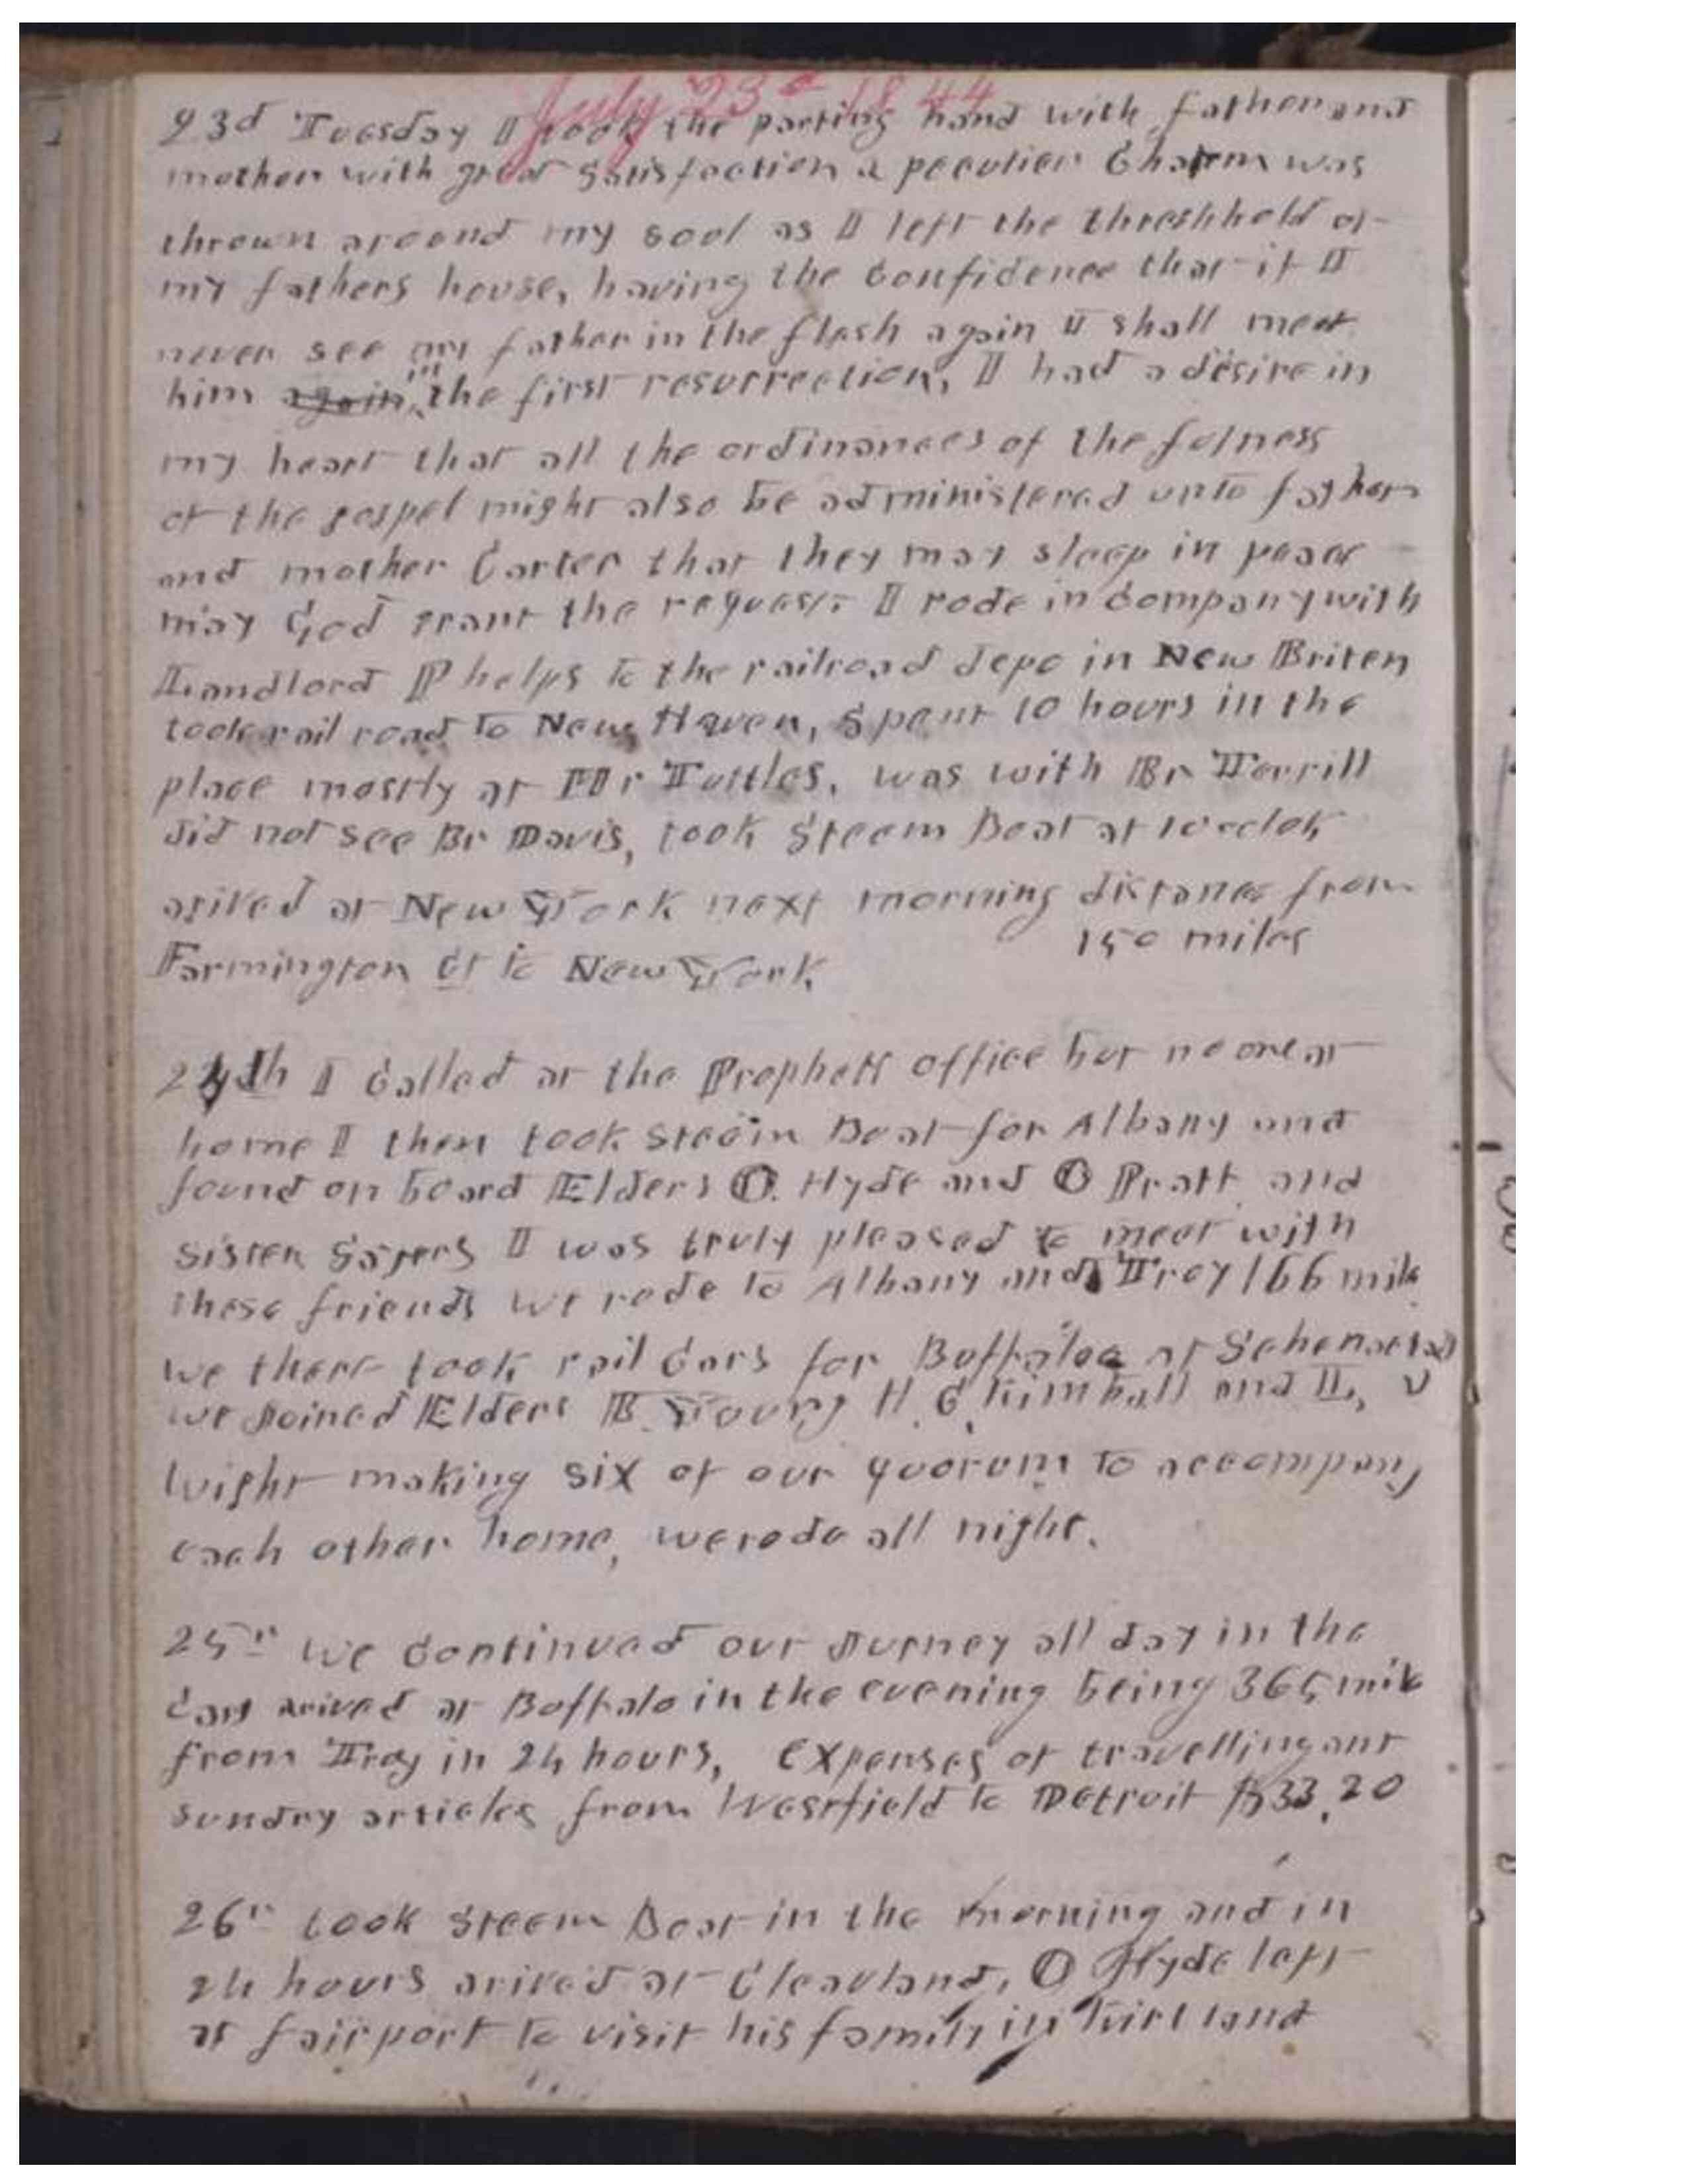 July 23d 1844
23d Tuesday I took the parting hand with father and
mother with great satisfaction a peculier Charm was
thrown around my soul as I left the threshhold of
my fathers house, having the Confidence that if I
never see my father in the flesh again I shall meet
him again in the first resurrection, I had a desire in
my heart that all the ordinances of the fulness
of the gospel might also be administered unto father
and mother Carter that they may sleep in peace
may God grant the request. I rode in Company with
Landlord Phelps to the railroad depo in New Briten
took rail road to New Haven, Spent 10 hours in the
place mostly at Mr Tuttles, was with Br Terrill
did not see Br Davis, took Steem Boat at 10 oclok
arived at New York next morning distance from
Farmington Ct to New York 150 miles
24th I Called at the Prophets office but no one at
home I then took steem Boat for Albany and
found on board Elders O. Hyde and O Pratt and
sister Sayers I was truly pleased to meet with
these friends we rode to Albany and Troy 166 mile
we there took rail Cars for Buffaloe at Schenactady
we Joined Elders B. Young H. C. Kimball and L,
wight making six of our quorum to accompany
each other home, we rode all night.
25th we Continued our Jurney all day in the
Cars arived at Buffalo in the evening being 365 mile
from Troy in 24 hours, Expenses of travelling ant
sundry articles from Westfield to Detroit $33,20
26th took steem Boat in the morning and in
24 hours arived at Cleavland, O Hyde left
at fairport to visit his family in kirtland